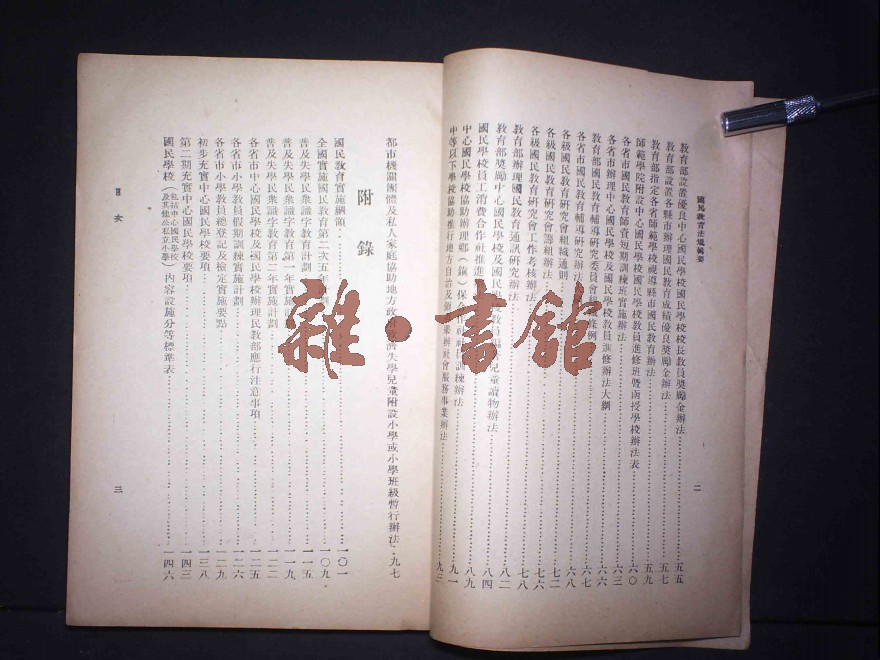 國民教育法規輯要
教育部設置優良中心國民學校國民學校校長教員獎勵金辦法 五五
教育部設置各縣市辦理國民教育成績優良獎勵金辦法 五七
教育部指定各省師範學校視導縣市國民教育辦法 五九
師範學院附設中心國民學校國民學校教員進修班暨函授學校辦法表 六〇
各省市國民教育師資短期訓練班實施辦法 六三
各省市辦理中心國民學校及國民學校教員進修辦法大綱 六六
教育部國民教育輔導研究委員會 條例 六六
各省市國民教育輔導研究辦法 六八
各級國民教育研究會組織通則 七二
各級國民教育研究會籌組辦法 七六
各級國民教育研究會工作考核辦法 七八
教育部辦理國民教育通訊研究辦法 八二
教育部獎勵中心國民學校及國民學校教員 兒童讀物辦法 八四
國民學校員工消費合作社推進 八九
中心國民學校協助辦理鄉（鎮）保 社 社員訓練辦法 九一
中等以下學校協助推行地方自治及 辦社會服務事業辦法 九三
二
都市機關團體及私人家庭協助地方政府 濟失學兒童附設小學或小學班級暫行辦法 九七
附錄
國民教育實施綱領 一〇一
全國實施國民教育第二次五年 一〇九
普及失學民衆識字教育計劃 一一五
普及失學民衆識字教育第一年實施 一一九
普及失學民衆識字教育第二年實施計劃 一二二
各省市中心國民學校及國民學校辦理民教部應行注意事項 一二五
各省市小學教員假期訓練實施計劃 一二六
各省市小學教員總登記及檢定實施要點 一二九
初步充實中心國民學校要項 一三八
第二期充實中心國民學校要項 一四三
國民學校（包括中心國民學校及其他公私立小學）內容設施分等標準表 一四六
目次
三
雜·書館